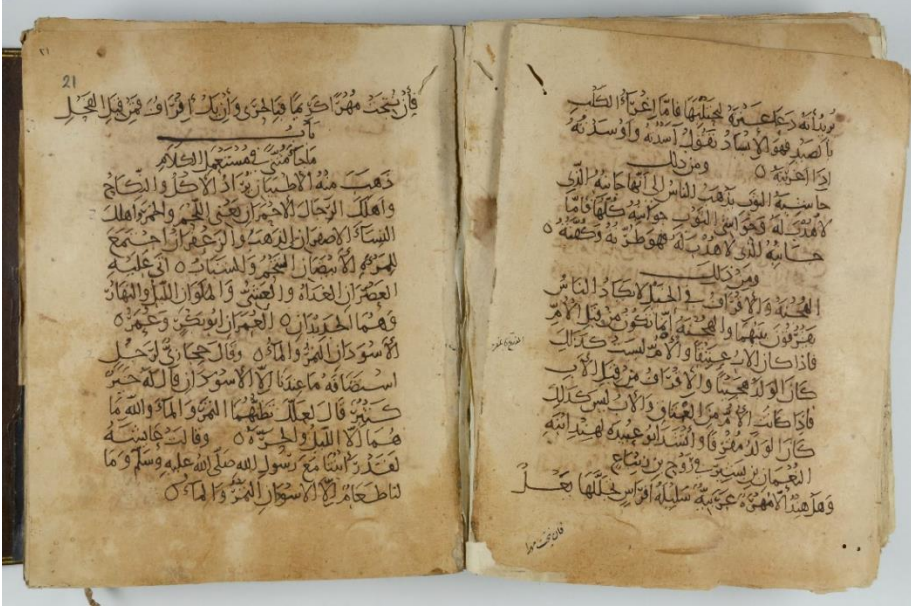 يريد أنه دعا عنزه ليحتلبها فاما إغراء الكلب
بالصيد فهو الإيساد تقول آسدته وأوسدته
إذا أغريته ٥ ومن ذلك
حاشية الثوب يذهب الناس إلى أنها جانبه الذي
لا هدب له وحواشي الثوب جوانبه كلها فاما
جانبه الذي لا هدب له فهو طرته وكفته ٥
ومن ذلك
الهجنة والاقراف في الخيل لا يكاد الناس
يفرقون بينهما والهجنة إنما تكون من قبل الأم
فاذا كان الاب عتيقا والأم ليست كذلك
كان الولد هجينا والاقراف من قبل الأب
فاذا كانت الأم من العتاق والأب ليس كذلك
كان الولد مقرفا وأنشد أبو عبيدة لهند ابنة
النعمان بن بشير في روح بن زنباع
وهل هند إلا مهرة عربية سليلة أفراس تجللها بغل
فان نتجت مهرا
٢١
21
فإن نتجت مهرا كريما فبالحرى وإن يك إقراف فمن قبل الفحل
باب
ما جاء مثنى في مستعمل الكلام
ذهب منه الأطيبان يراد الأكل والنكاح
وأهلك الرجال الأحمران يعني اللحم والخمر وأهلك
النساء الأصفران الذهب والزعفران اجتمع
للمرء الأبيضان الشحم والشباب ٥ أتى عليه
العصران الغداة والعشي والملوان الليل والنهار
وهما الجديدان ٥ العمران أبو بكر وعمر ٥
الأسودان التمر والماء ٥ وقال حجازي لرجل
استضافه ما عندنا إلا الأسودان قال له خير
كثير قال لعلك تظنهما التمر والماء والله ما
هما إلا الليل والحرة ٥ وقالت عائشة
لقد رأيتنا مع رسول الله صلى الله عليه وسلم وما
لنا طعام إلا الأسودان التمر والماء ٥